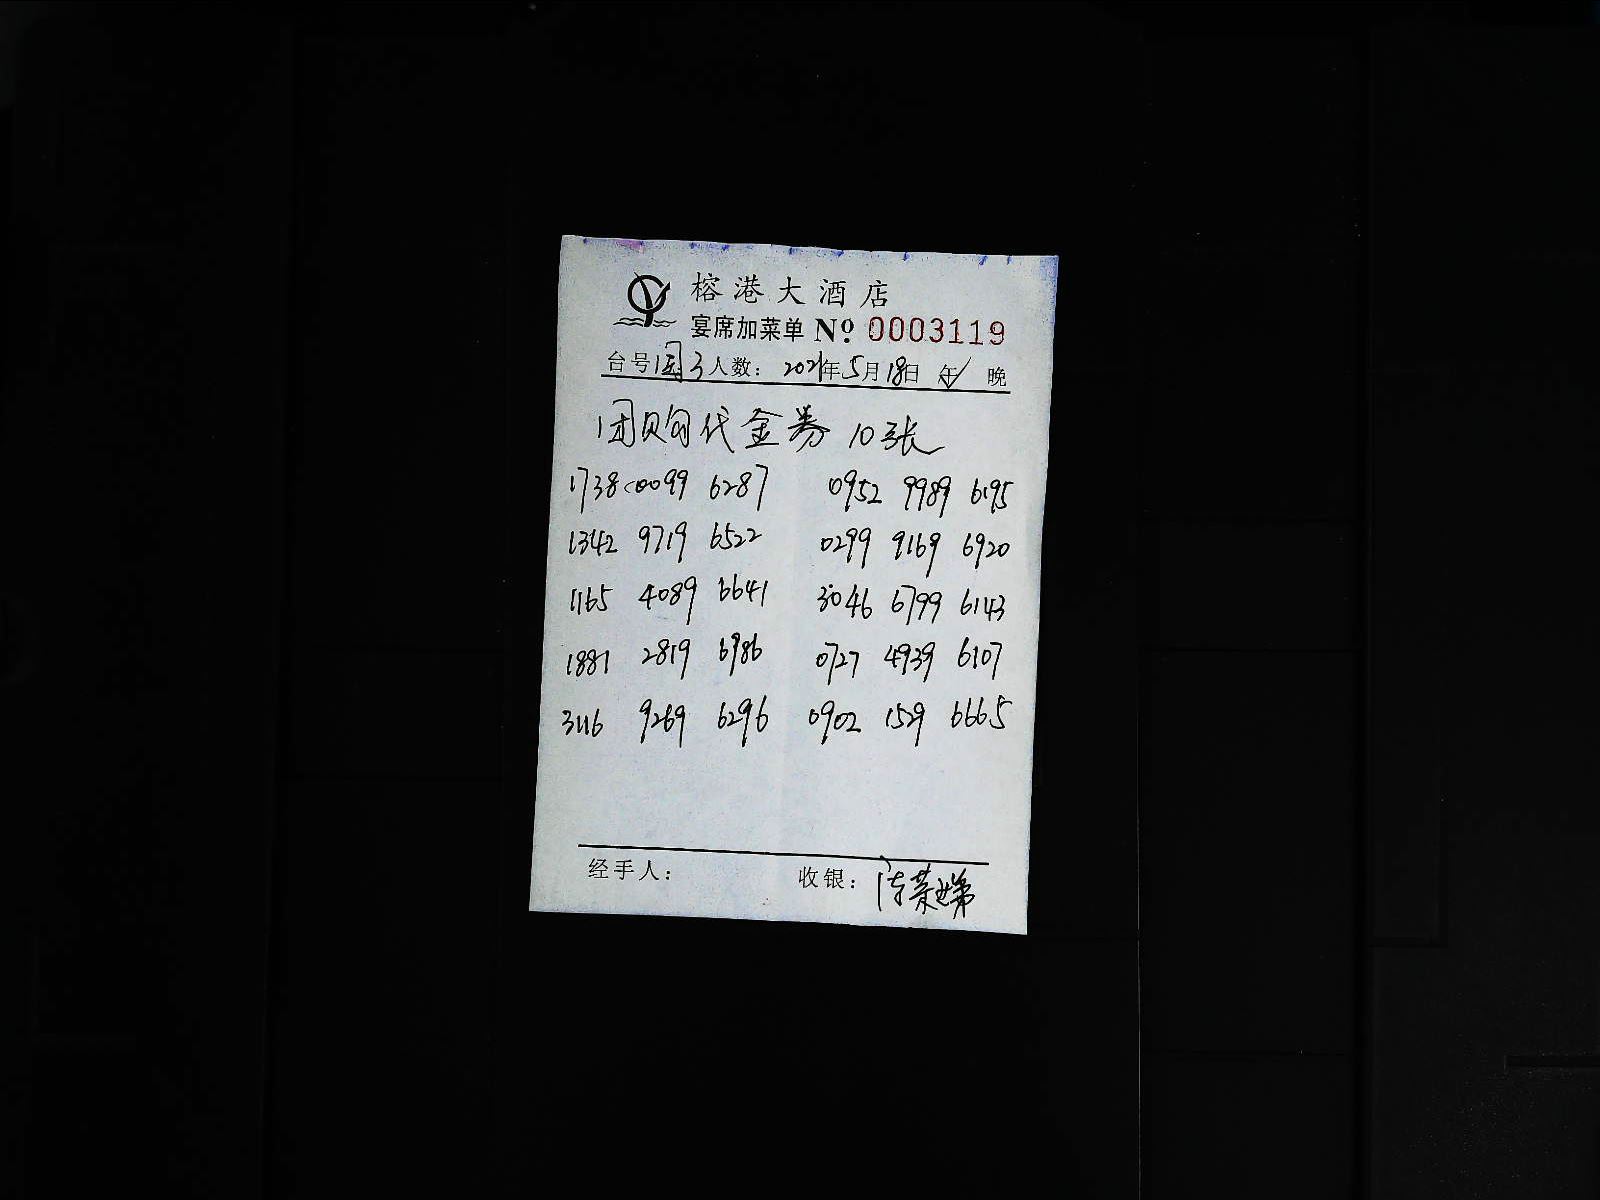 榕港大酒店
宴席加菜单 Nº 0003119
台号 国3 人数: 2021年5月18日 午 晚
团购代金券 10张
1738 0099 6287 0952 9989 6195
1342 9719 6522 0299 9169 6920
1165 4089 6641 3046 6799 6143
1881 2819 6986 0727 4939 6107
3116 9269 6296 0902 1529 6665
经手人: 收银: